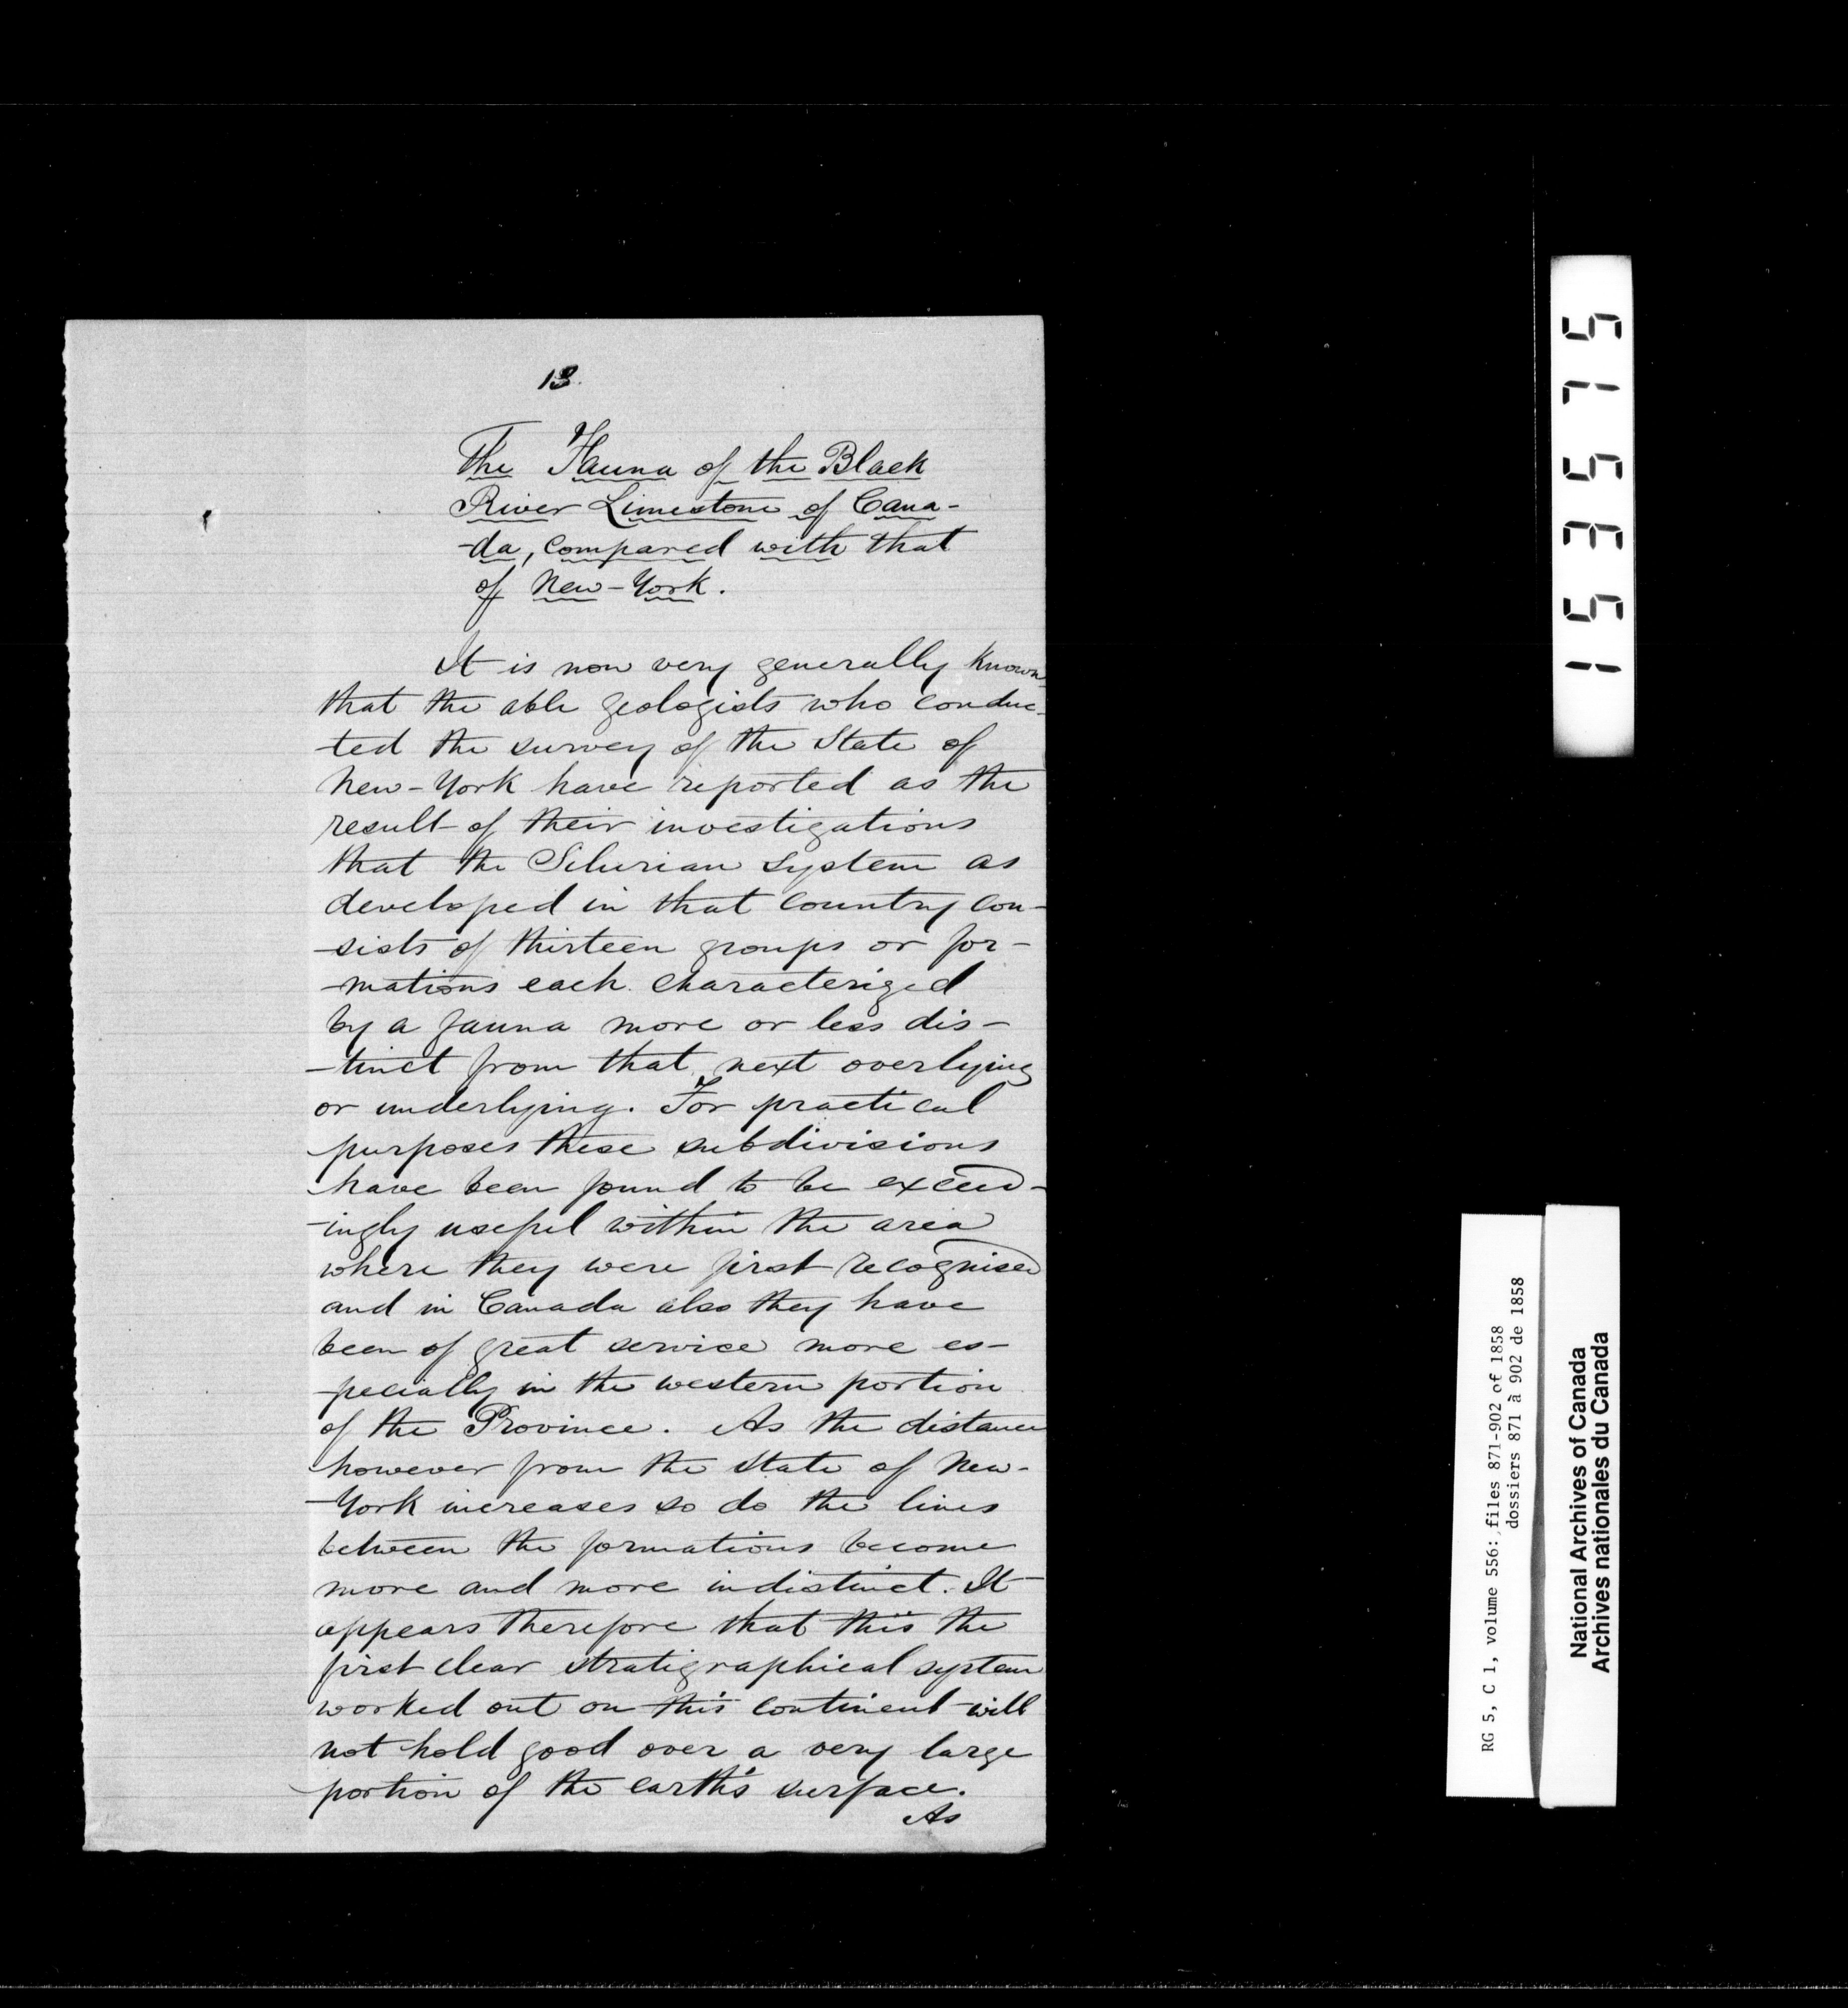 13.
The Fauna of the Black
River Limestone of Cana-
-da, compared with that
of New-York.
It is now very generally known
that the able geologists who conduc-
-ted the survey of the State of
New-York have reported as the
result of their investigations
that the Silurian system as
developed in that country con-
-sists of thirteen groups or for-
-mations each characterized
by a fauna more or less dis-
-tinct from that next overlying
or underlying. For practical
purposes these subdivisions
have been found to be exceed-
-ingly useful within the area
where they were first recognised
and in Canada also they have
been of great service more es-
-pecially in the western portion
of the Province. As the distance
however from the State of New-
-York increases so do the lines
between the formations become
more and more indistinct. It
appears therefore that this the
first clear stratigraphical system
worked out on this continent will
not hold good over a very large
portion of the earth's surface.
As
153575
RG 5, C 1, volume 556: files 871-902 of 1858
dossiers 871 à 902 de 1858
National Archives of Canada
Archives nationales du Canada